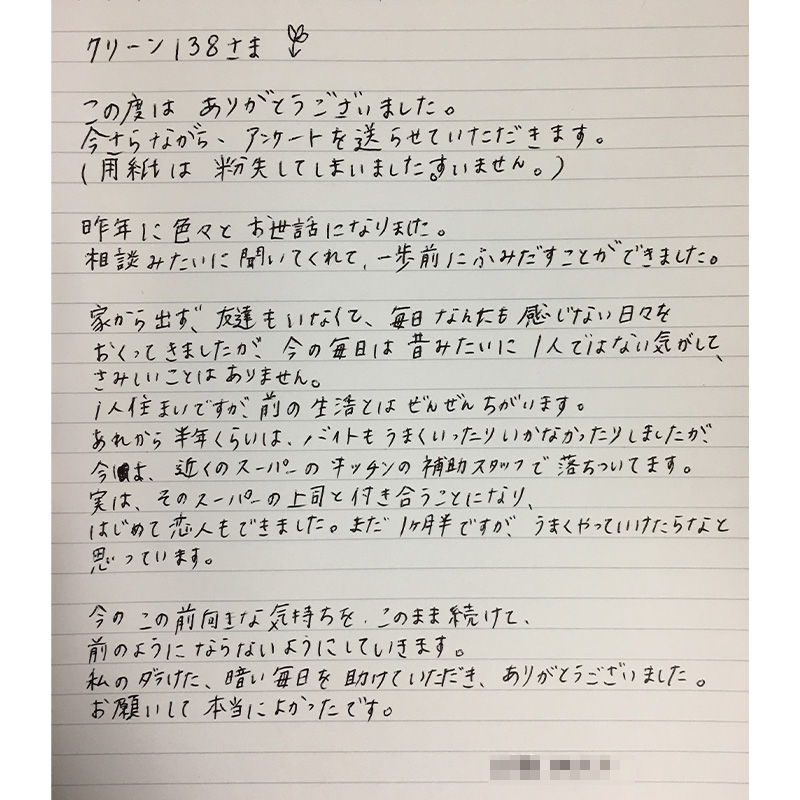 クリーン138さま
この度は ありがとうございました。
今さらながら、アンケートを送らせていただきます。
(用紙は 粉失してしまいました。すいません。)
昨年に色々と お世話になりました。
相談みたいに聞いてくれて、一歩前にふみだすことができました。
家から出ず、友達もいなくて、毎日なんにも感じない日々を
おくってきましたが、今の毎日は昔みたいに1人ではない気がして、
さみしいことはありません。
1人住まいですが、前の生活とはぜんぜんちがいます。
あれから半年くらいは、バイトもうまくいったりいかなかったりしましたが、
今は、近くのスーパーのキッチンの補助スタッフで落ちついてます。
実は、そのスーパーの上司と付き合うことになり、
はじめて恋人もできました。まだ1ヶ月半ですが、うまくやっていけたらなと
思っています。
今の この前向きな気持ちを、このまま続けて、
前のようにならないようにしていきます。
私のダラけた、暗い毎日を助けていただき、ありがとうございました。
お願いして 本当によかったです。